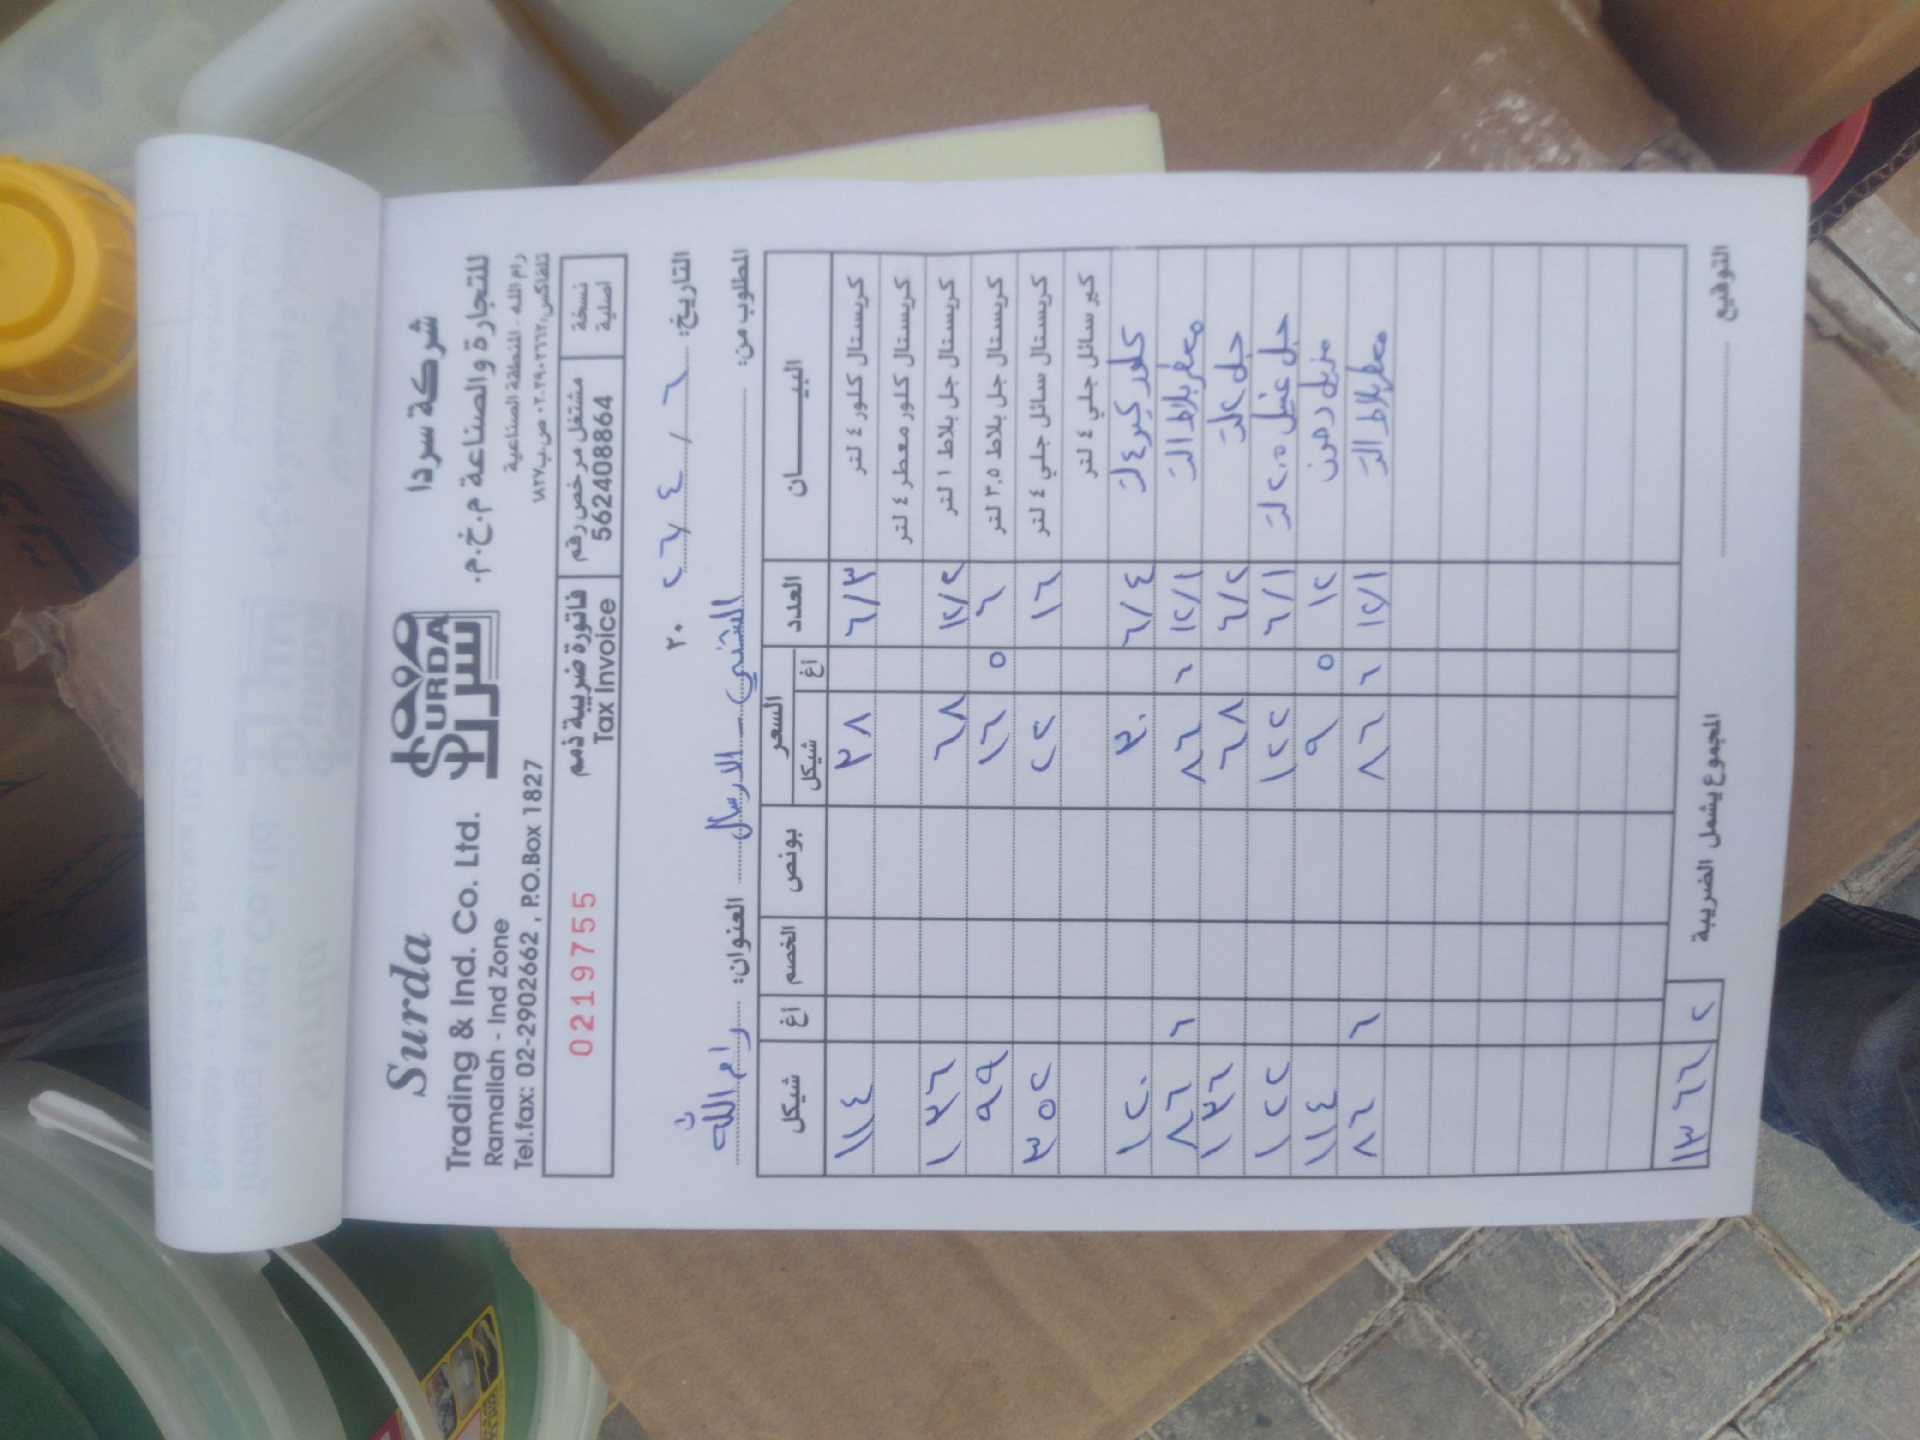 Surda
Trading & Ind. Co. Ltd.
Ramallah - Ind Zone
Tel.fax: 02-2902662 , P.O.Box 1827
SURDA
سردا
شركة سردا
للتجارة والصناعة م.خ.م.
رام الله - المنطقة الصناعية
تلفاكس: ٠٢-٢٩٠٢٦٦٢ ص.ب ١٨٢٧
0219755
فاتورة ضريبية ذمم
Tax Invoice
مشتغل مرخص رقم
562408864
نسخة
اصلية
التاريخ: ٦ / ٤ / ٢٠٢٦
المطلوب من: الشني - الارسال العنوان: رام الله
البيـــــان العدد السعر بونص الخصم اغ شيكل
شيكل اغ
كريستال كلور ٤ لتر ٦/٣ ٣٨ ١١٤
كريستال كلور معطر ٤ لتر
كريستال جل بلاط ١ لتر ١٢/٢ ٦٨ ١٣٦
كريستال جل بلاط ٣,٥ لتر ٦ ١٦ ٥ ٩٩
كريستال سائل جلي ٤ لتر ١٦ ٢٢ ٣٥٢
كير سائل جلي ٤ لتر
كلور كير ٤ لتر ٦/٤ ٣٠ ١٢٠
معطر بلاط ١ لتر ١٢/١ ٨٦ ٦ ٨٦ ٦
جل ٤ لتر ٦/٢ ٦٨ ١٣٦
جل غسيل ٢,٥ لتر ٦/١ ١٢٢ ١٢٢
مزيل دهون ١٢ ٩ ٥ ١١٤
معطر بلاط ١ لتر ١٢/١ ٨٦ ٦ ٨٦ ٦
المجموع يشمل الضريبة ١٣٦٦ ٢
التوقيع